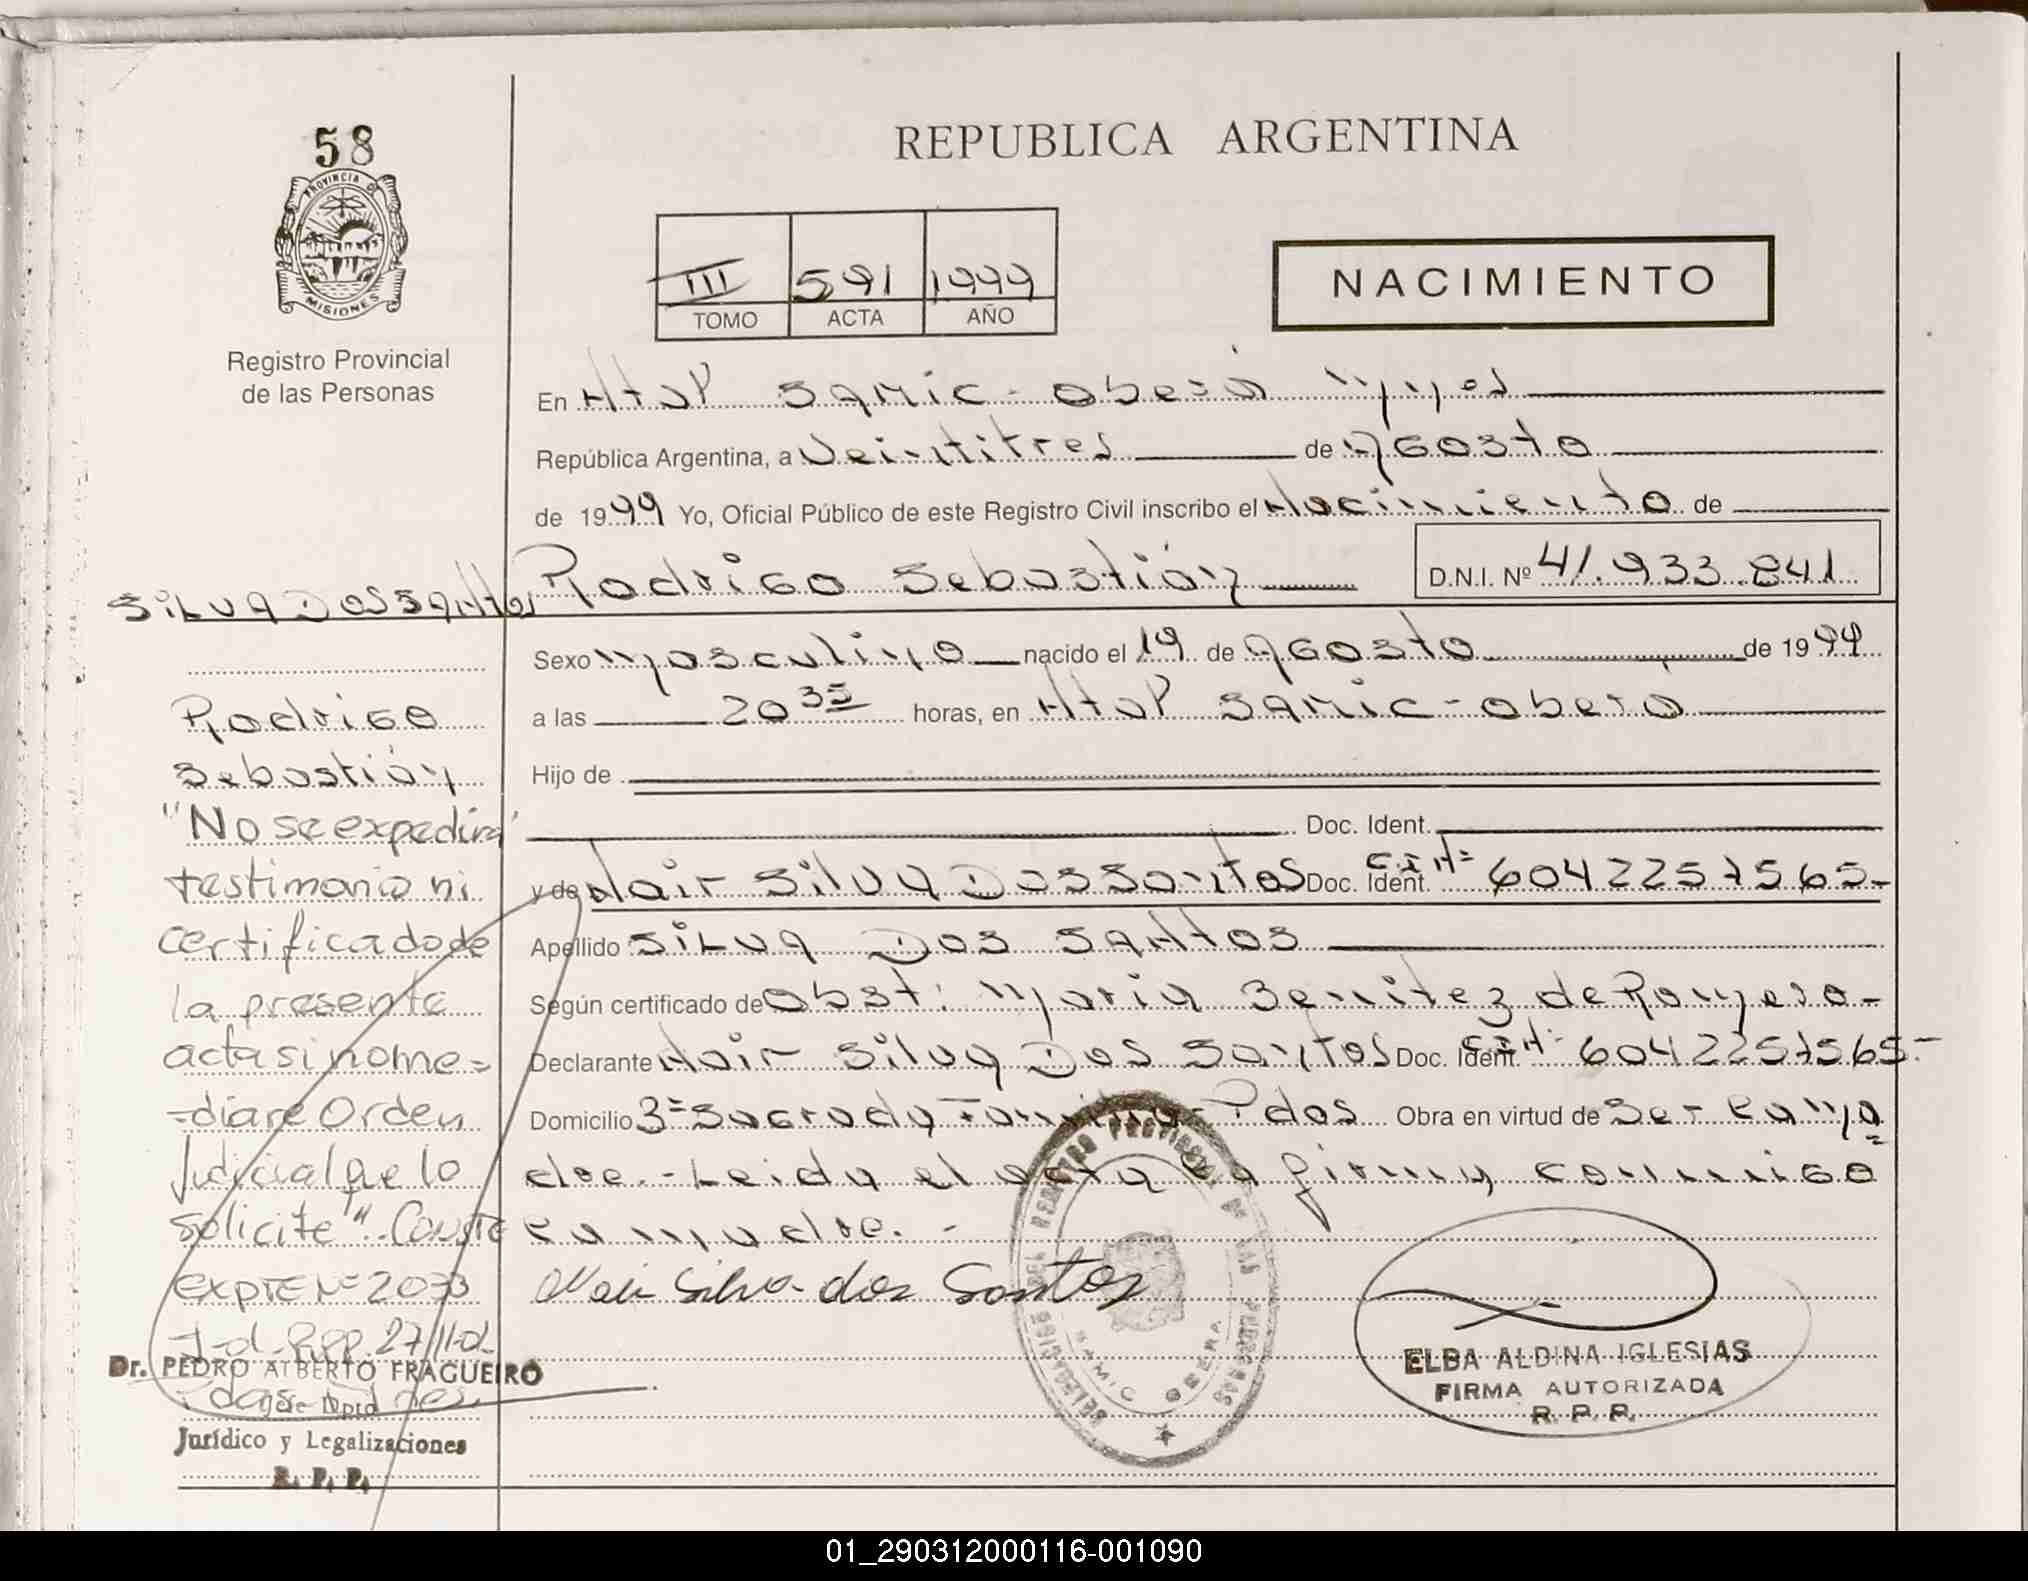 58
PROVINCIA D
MISIONES
Registro Provincial
de las Personas
REPUBLICA ARGENTINA
III 591 1999
TOMO ACTA AÑO
NACIMIENTO
En Htal SAMIC - Oberá Mnes
República Argentina, a Veintitres de Agosto
de 1999 Yo, Oficial Público de este Registro Civil inscribo el Nacimiento de
SILVA DOS SANTOS Rodrigo Sebastián D.N.I. Nº 41.933.841
Sexo Masculino nacido el 19 de Agosto de 1999
a las 20 35 horas, en Htal SAMIC - Oberá
Hijo de
Doc. Ident.
y de Nair Silva Dos Santos Doc. Ident. 6042257565-
Apellido SILVA DOS SANTOS
Según certificado de Obst: Maria Benitez de Romero-
Declarante Nair Silva Dos Santos Doc. Ident. 6042257565-
Domicilio 3= Sagrada Familia - Pdas Obra en virtud de Ser la ma
dre.- Leida el acta la firma conmigo
la madre.-
Nair Silva dos Santos
Rodrigo
Sebastián
"No se expedira
testimonio ni
certificado de
la presente
acta si no me=
-diare Orden
Judicial que lo
solicite". Conste
expte Nº 2073
Dr. PEDRO ALBERTO FRAGUEIRO
Jefe Dpto
Jurídico y Legalizaciones
R. P. P.
DELEGACION DEL REGISTRO PROVINCIAL DE LAS PERSONAS
SAMIC OBERA
ELBA ALDINA IGLESIAS
FIRMA AUTORIZADA
R. P. P.
01_290312000116-001090